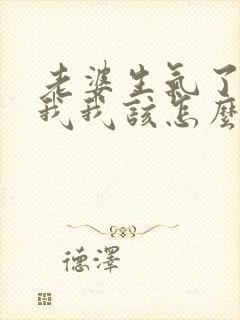 老婆生氣了
我我該怎麼
德澤